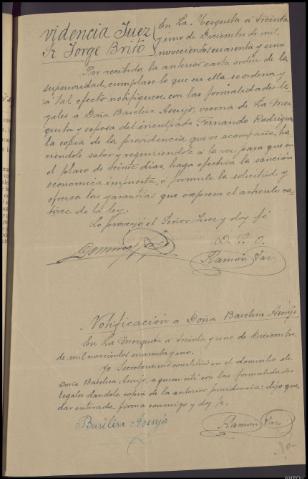 videncia Juez En La Mezquita a treinta
Sr Jorge Brito y uno de Diciembre de mil
novecientos cuarenta y uno
Por recibida la anterior carta orden de la
superioridad, cumplase lo que en ella se ordena y
a tal efecto notifiquese, con las formalidades le-
gales a Doña Basilisa Asenjo, vecina de La Mez-
quita y esposa del inculpado Fernando Rodriguez
la copia de la providencia que se acompaña, ha-
ciendole saber y requiriendole a la vez para que en
el plazo de veinte dias haga efectiva la sanción
economica impuesta, o formule la solicitud y
ofrezca las garantias que expresa el articulo ca-
torce de la ley.
Lo proveyó el Señor Juez y doy fé
Ramón
Notificación a Doña Basilisa Asenjo
En La Mezquita a treinta y uno de Diciembre
de mil novecientos cuarenta y uno.
Yo Secretario constituido en el domicilio de
Doña Basilisa Asenjo, a quien leí con las formalidades
legales dandole copia de la anterior providencia: dijo que-
dar enterada, firma conmigo y doy fé.
Basilisa Asenjo
Ramón